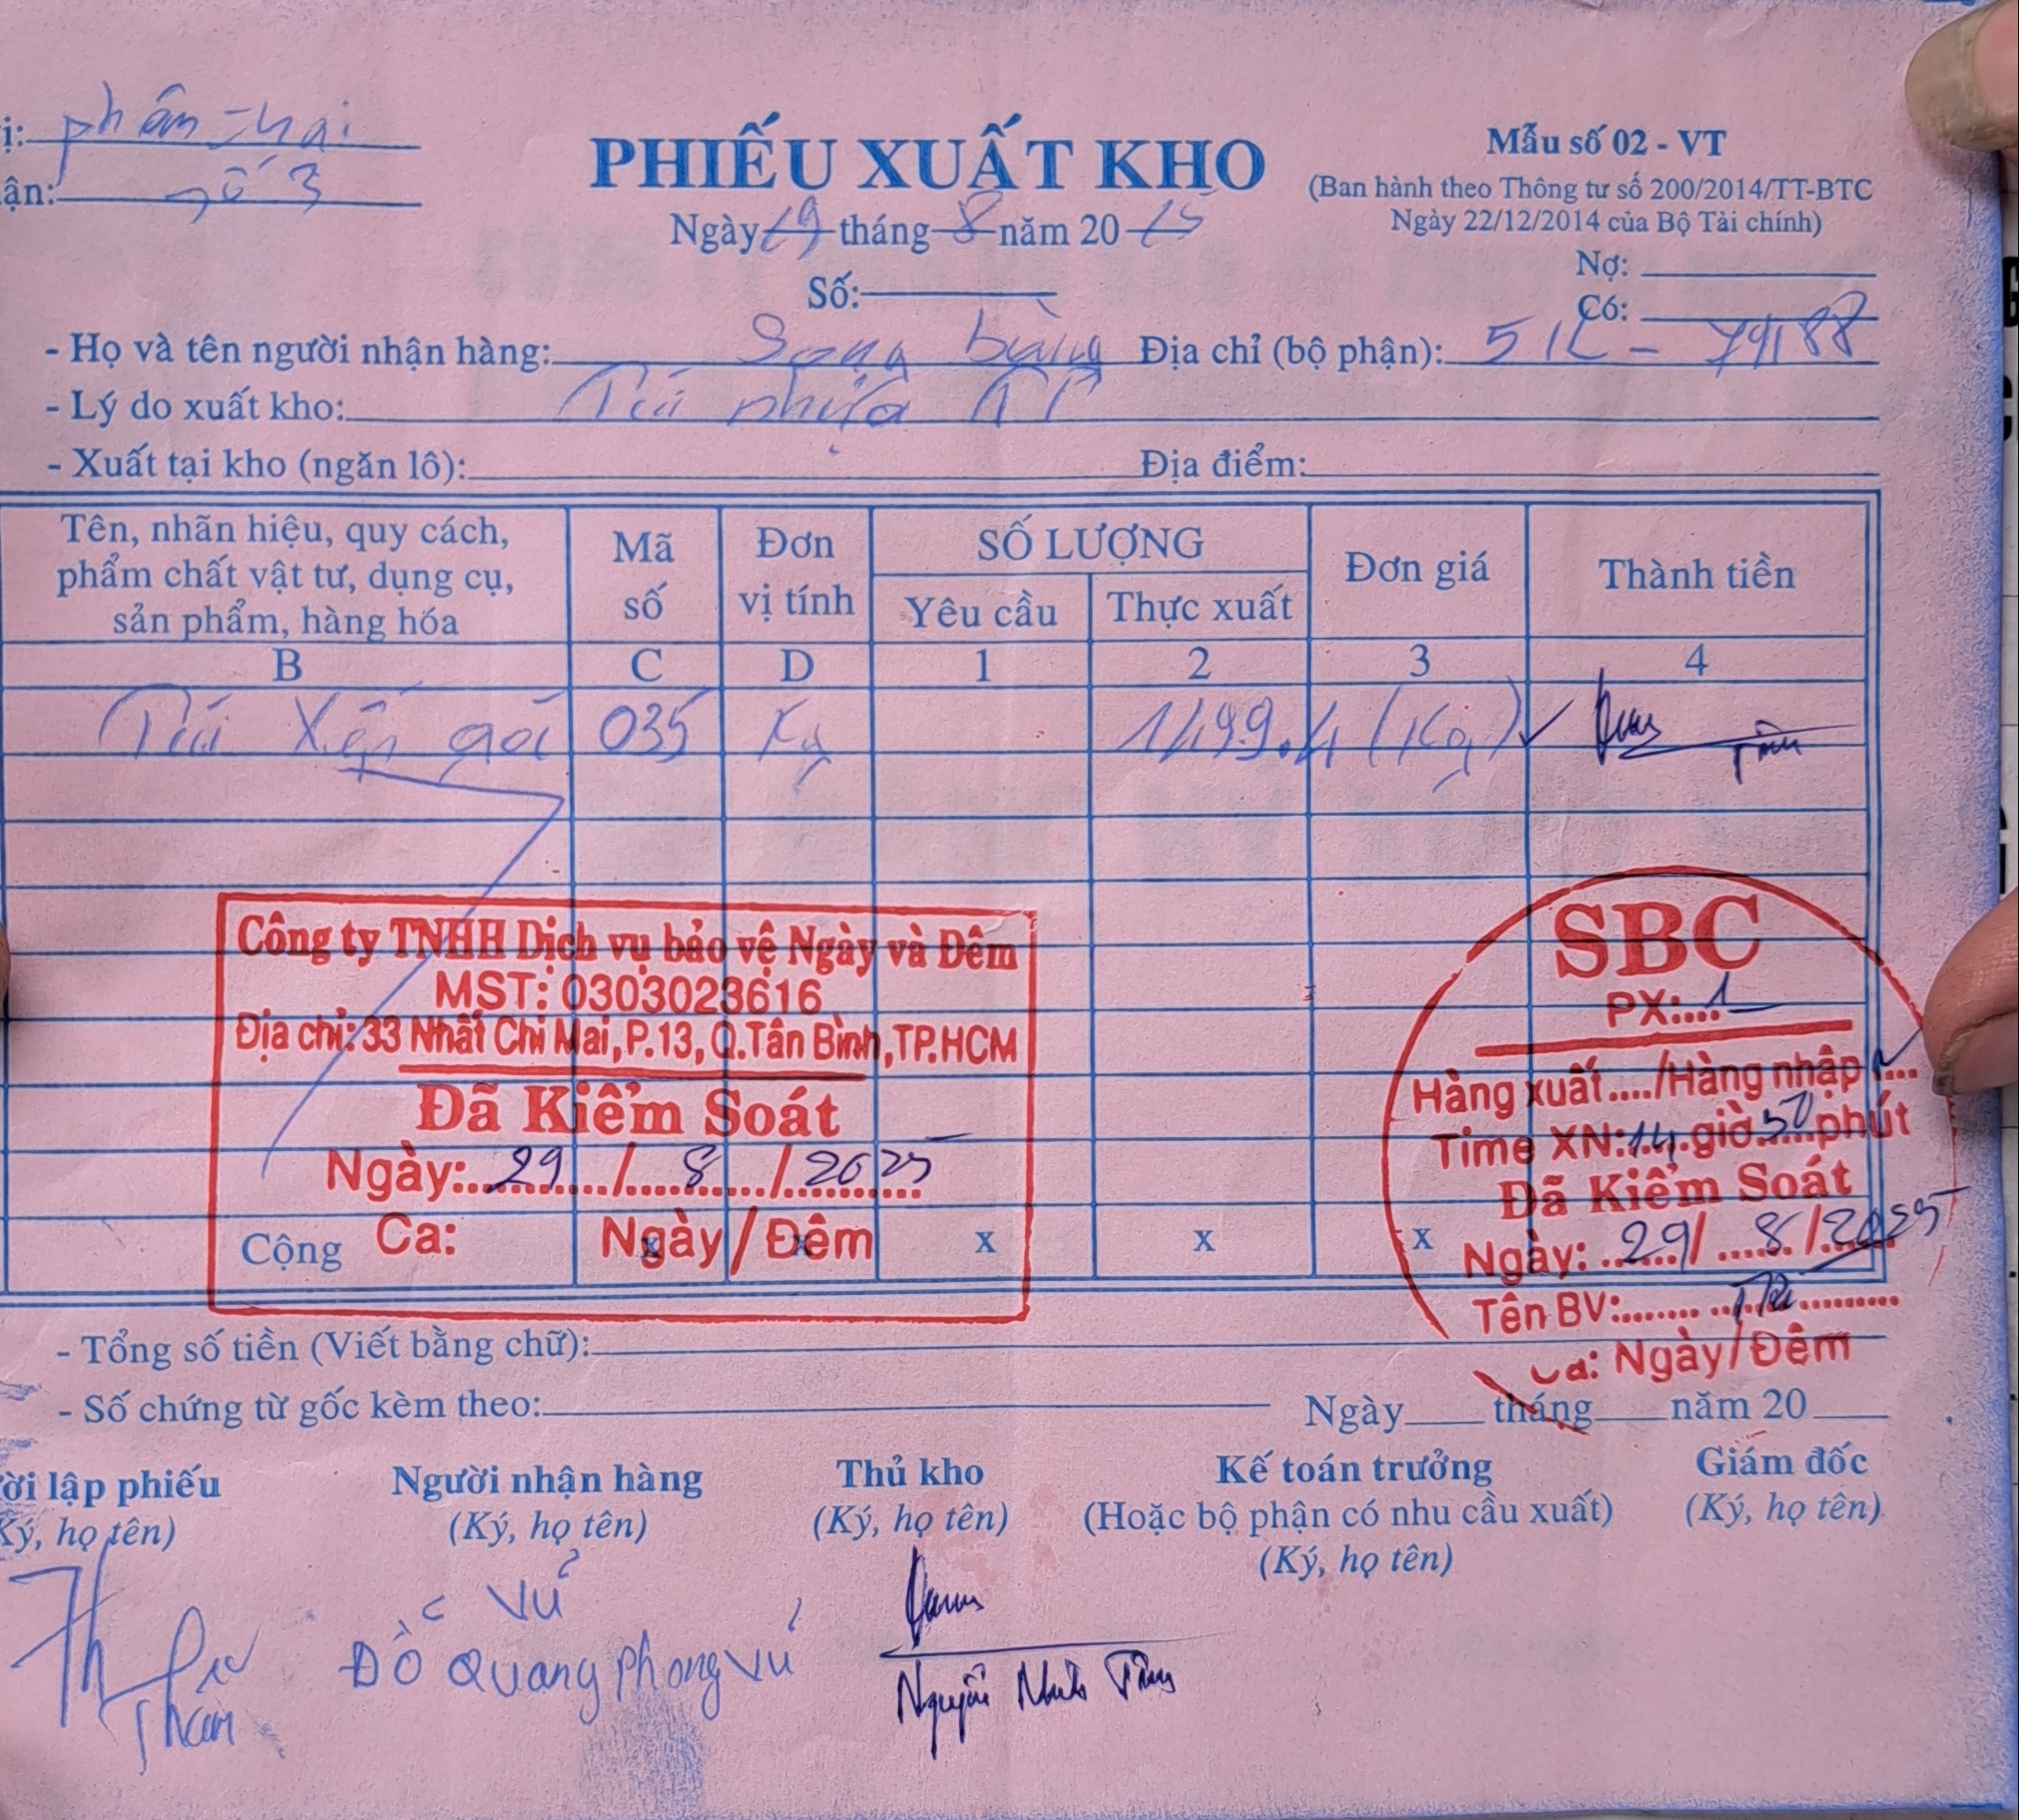 ị: phân Hai
ận: số 3
PHIẾU XUẤT KHO
Ngày 29 tháng 8 năm 20 25
Số:
Mẫu số 02 - VT
(Ban hành theo Thông tư số 200/2014/TT-BTC
Ngày 22/12/2014 của Bộ Tài chính)
Nợ:
Có:
- Họ và tên người nhận hàng: Song bằng Địa chỉ (bộ phận): 51C - 79188
- Lý do xuất kho: Túi nhựa
- Xuất tại kho (ngăn lô): Địa điểm:
Tên, nhãn hiệu, quy cách, phẩm chất vật tư, dụng cụ, sản phẩm, hàng hóa
Mã số
Đơn vị tính
SỐ LƯỢNG
Yêu cầu
Thực xuất
Đơn giá
Thành tiền
B C D 1 2 3 4
Túi Xếp gói 035 Kg 1499.4 (Kg)
Công ty TNHH Dịch vụ bảo vệ Ngày và Đêm
MST: 0303023616
Địa chỉ: 33 Nhất Chi Mai, P.13, Q.Tân Bình, TP.HCM
Đã Kiểm Soát
Ngày: 29 / 8 / 2025
Ca: Ngày / Đêm
SBC
PX: 1
Hàng xuất..../Hàng nhập....
Time XN: 14 giờ 50 phút
Đã Kiểm Soát
Ngày: 29 / 8 / 2025
Tên BV:
Ca: Ngày/Đêm
Cộng x x x x x
- Tổng số tiền (Viết bằng chữ):
- Số chứng từ gốc kèm theo:
Ngày tháng năm 20
ời lập phiếu
Ký, họ tên)
Người nhận hàng
(Ký, họ tên)
Thủ kho
(Ký, họ tên)
Kế toán trưởng
(Hoặc bộ phận có nhu cầu xuất)
(Ký, họ tên)
Giám đốc
(Ký, họ tên)
Vũ
ĐỖ Quang Phong Vũ
Nguyễn Minh